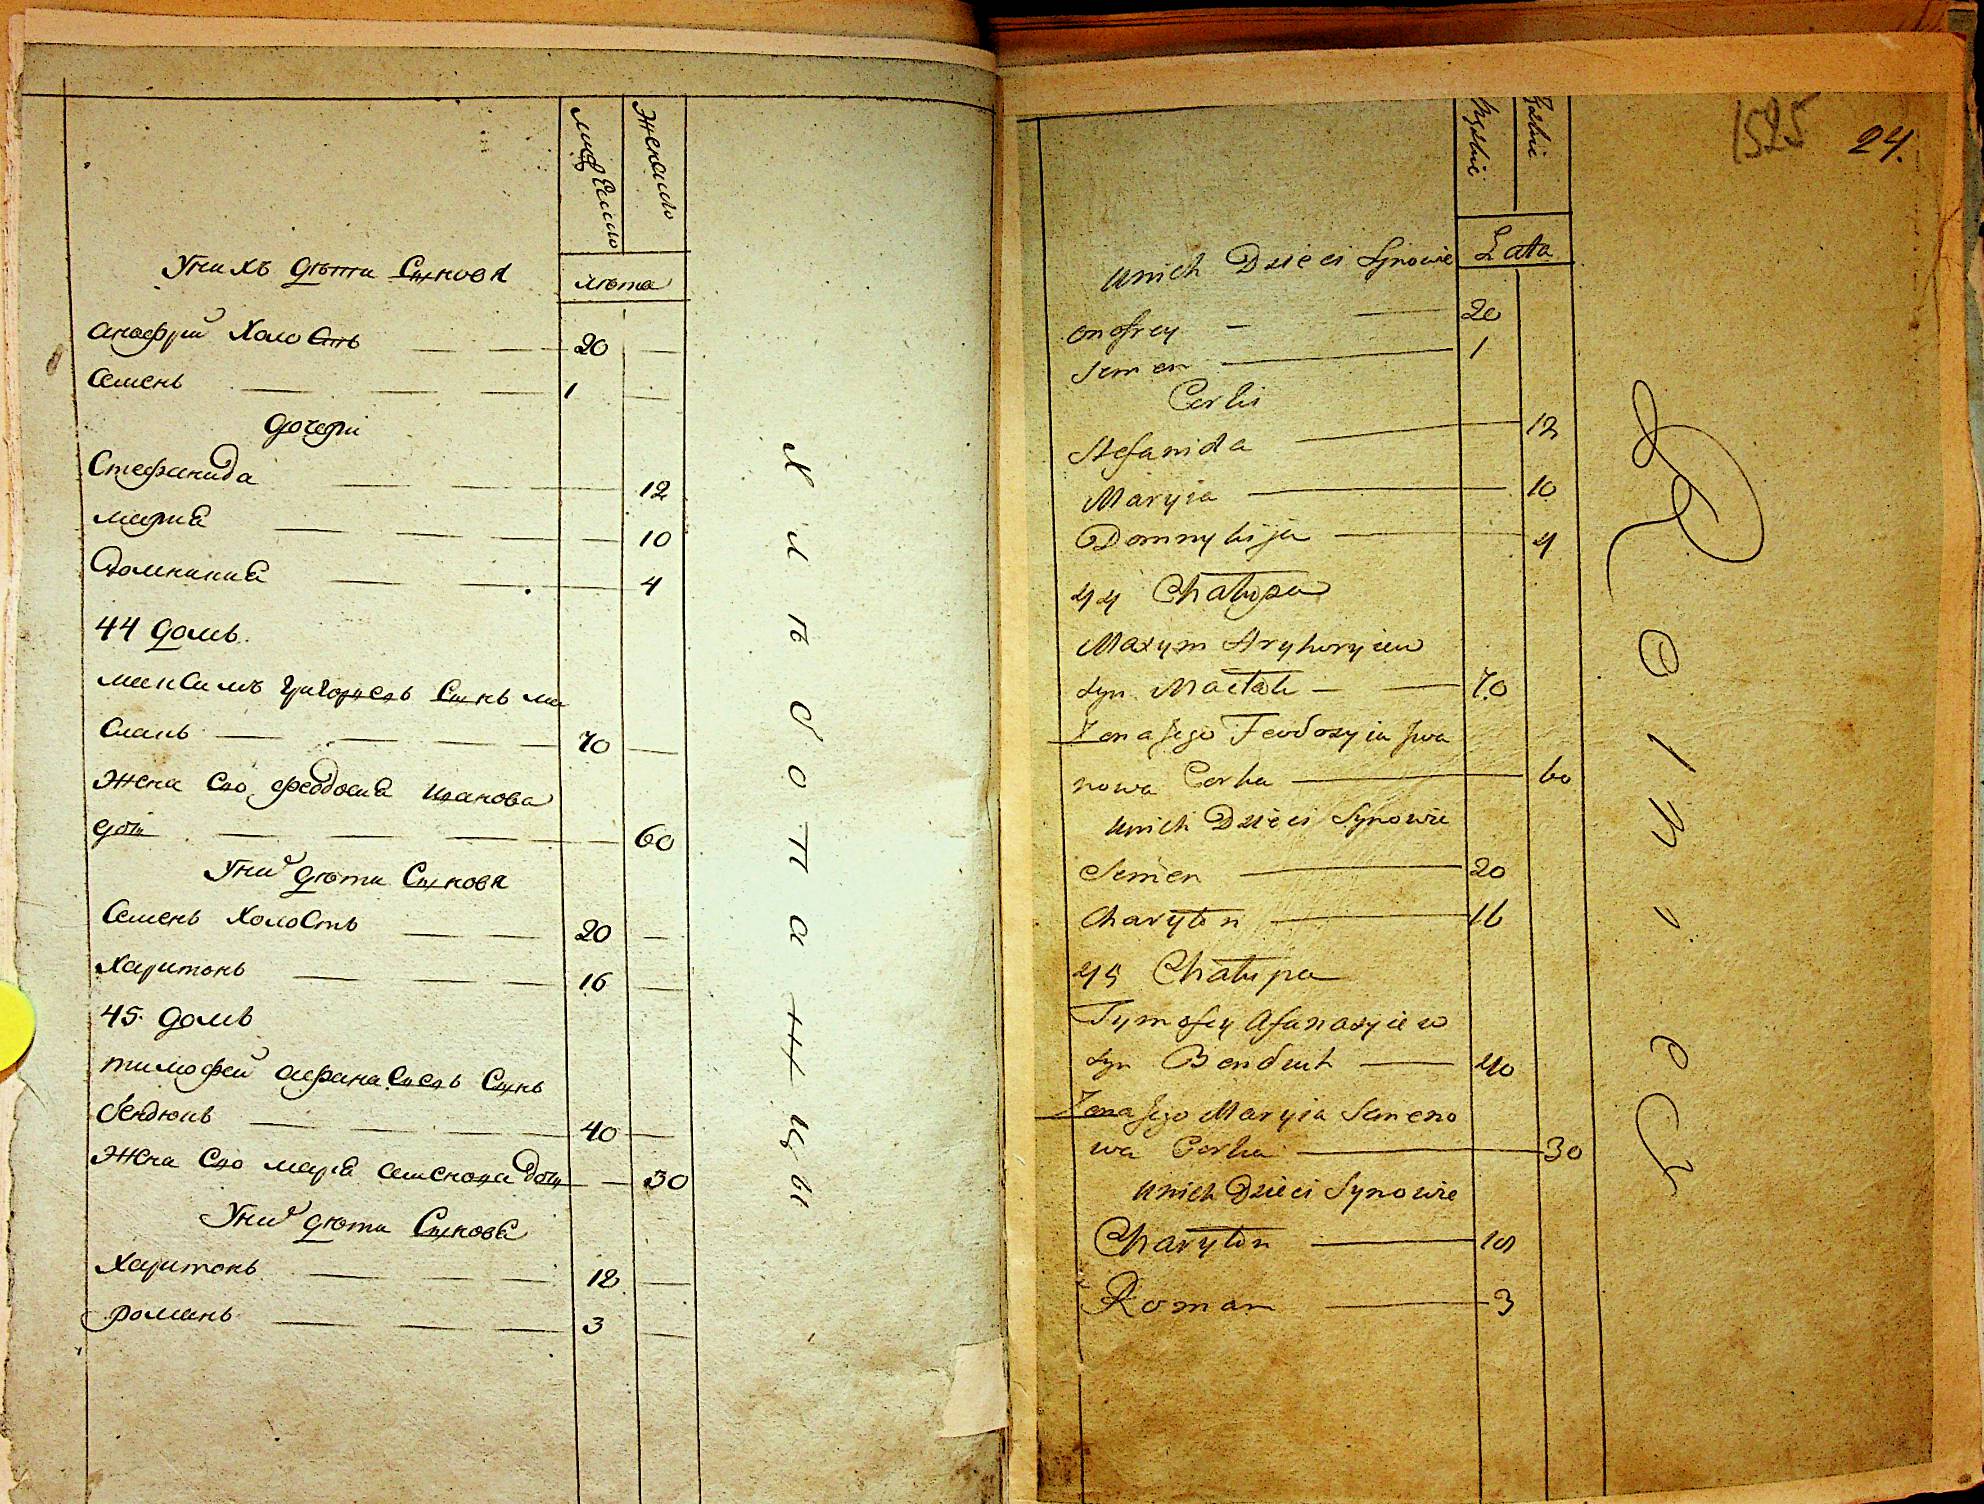 Мужеско
Женско
У нихъ дѣти Сыновя
лѣта
анофрій ХолоСтъ 20
Семенъ 1
дочери
Стефанида 12
марія 10
Домникия 4
44 домъ.
макСимъ григорьевъ Сынъ ма
70
жена Его феодосия иванова
дочь 60
У них дѣти Сыновя
Семенъ ХолоСтъ 20
Харитонъ 16
45. домъ
тимофей афанаСиевъ Сынъ
бендюкъ 40
жена Его марія Семенова дочь 30
У них дѣти Сыновя
Харитонъ 18
романъ 3
Хлѣбопашцы
1525
24.
Męzkie
Żeńskie
Unich Dzieci Synowie
Lata
Onofrey - 20
Semen 1
Corki
Stefanida 12
Maryia 10
Domnykija 4
44 Chałupa
Maxym Hryhoryiew
syn 70
Zona Jego Feodozyia Jwa
nowa Corka 60
Unich Dzieci Synowie
Semen 20
Charyton 16
45 Chałupa
Tymofey Afanazyiew
syn Bendiuk 40
Zona Jego Maryia Semeno
wa Corka 30
Unich Dzieci Synowie
Charyton 18
Roman 3
Rolnicy